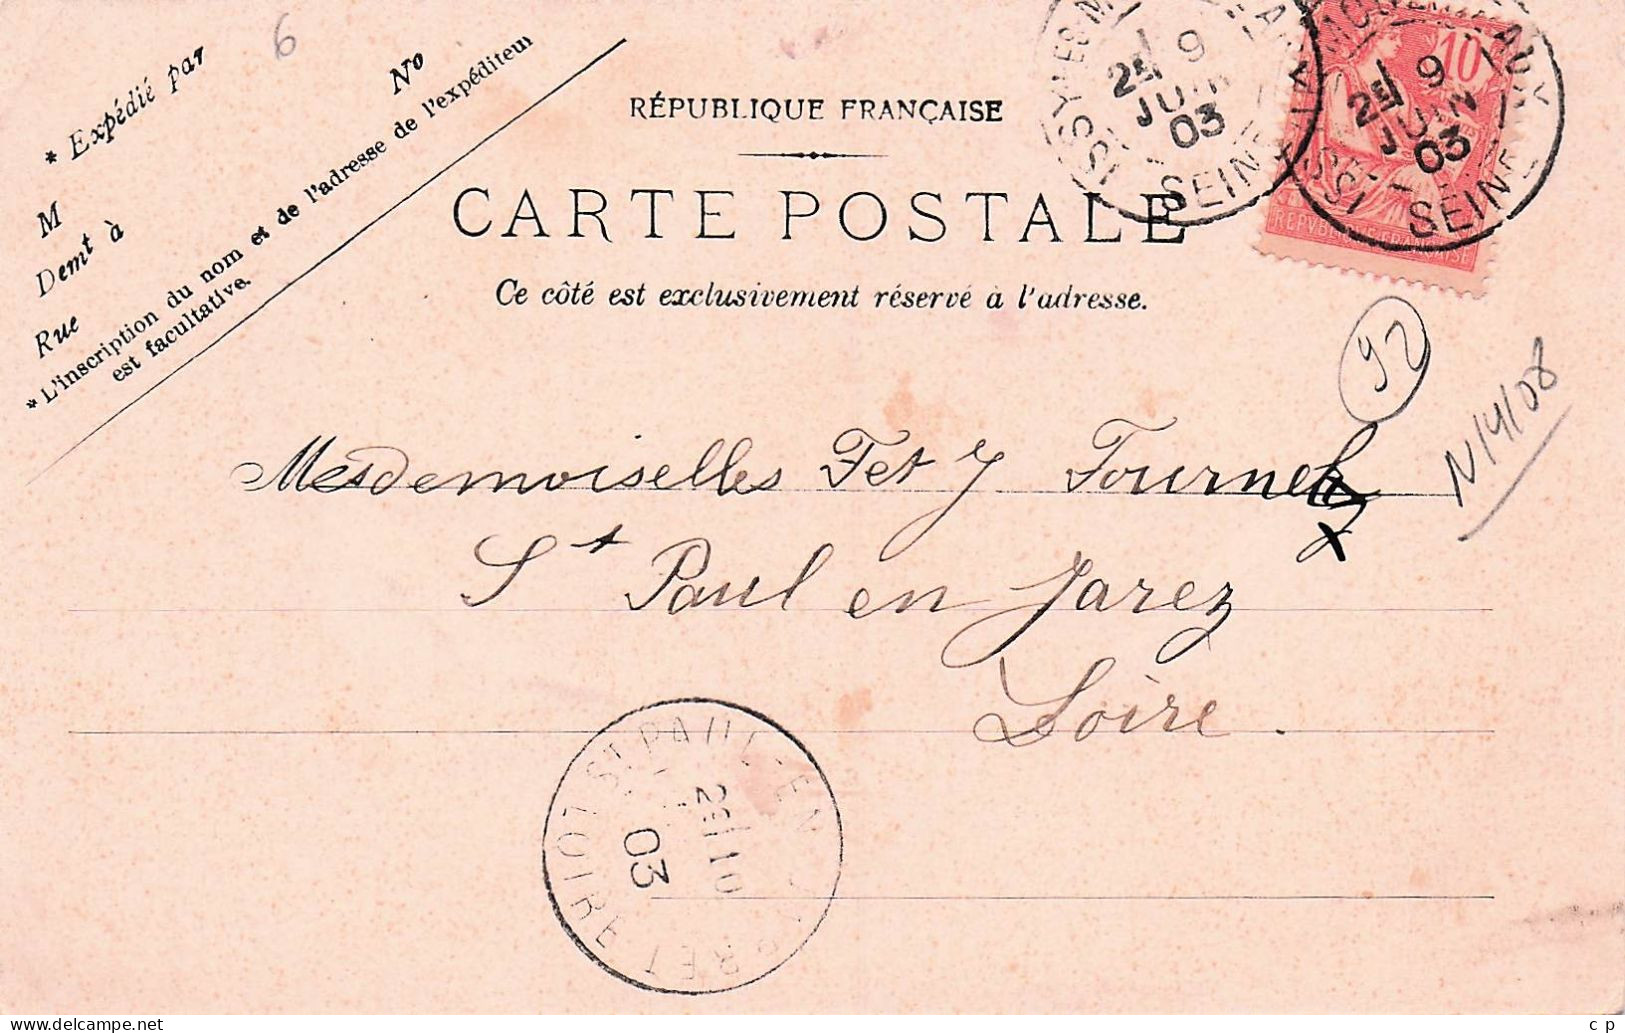 6
* Expédié par
N°
M
Demt à
Rue
* L'inscription du nom et de l'adresse de l'expéditeur
est facultative.
RÉPUBLIQUE FRANÇAISE
CARTE POSTALE
Ce côté est exclusivement réservé à l'adresse.
ISSY-LES-M
2E 9
JUIN
03
SEINE
10
ISSY-LES-MOULINEAUX
2E 9
JUIN
03
SEINE
REPVBLIQVE FRANÇAISE
92
N/4/08
Mesdemoiselles F et J Fournel
x
St Paul en Jarez
Loire.
ST PAUL-EN-JARRET
2E 10
03
LOIRE
www.delcampe.net
c p